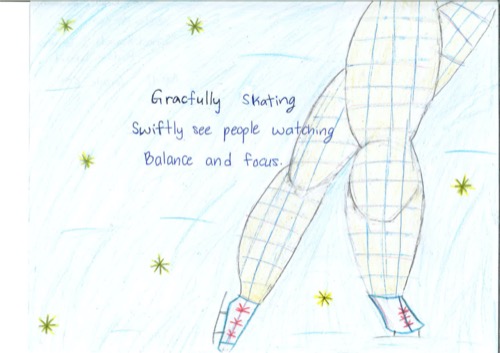 Gracfully Skating
Swiftly see people watching
Balance and focus.